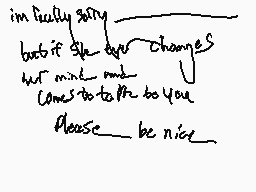 im really sorry
but if she ever changes
her mind and
comes to talk to you
Please be nice